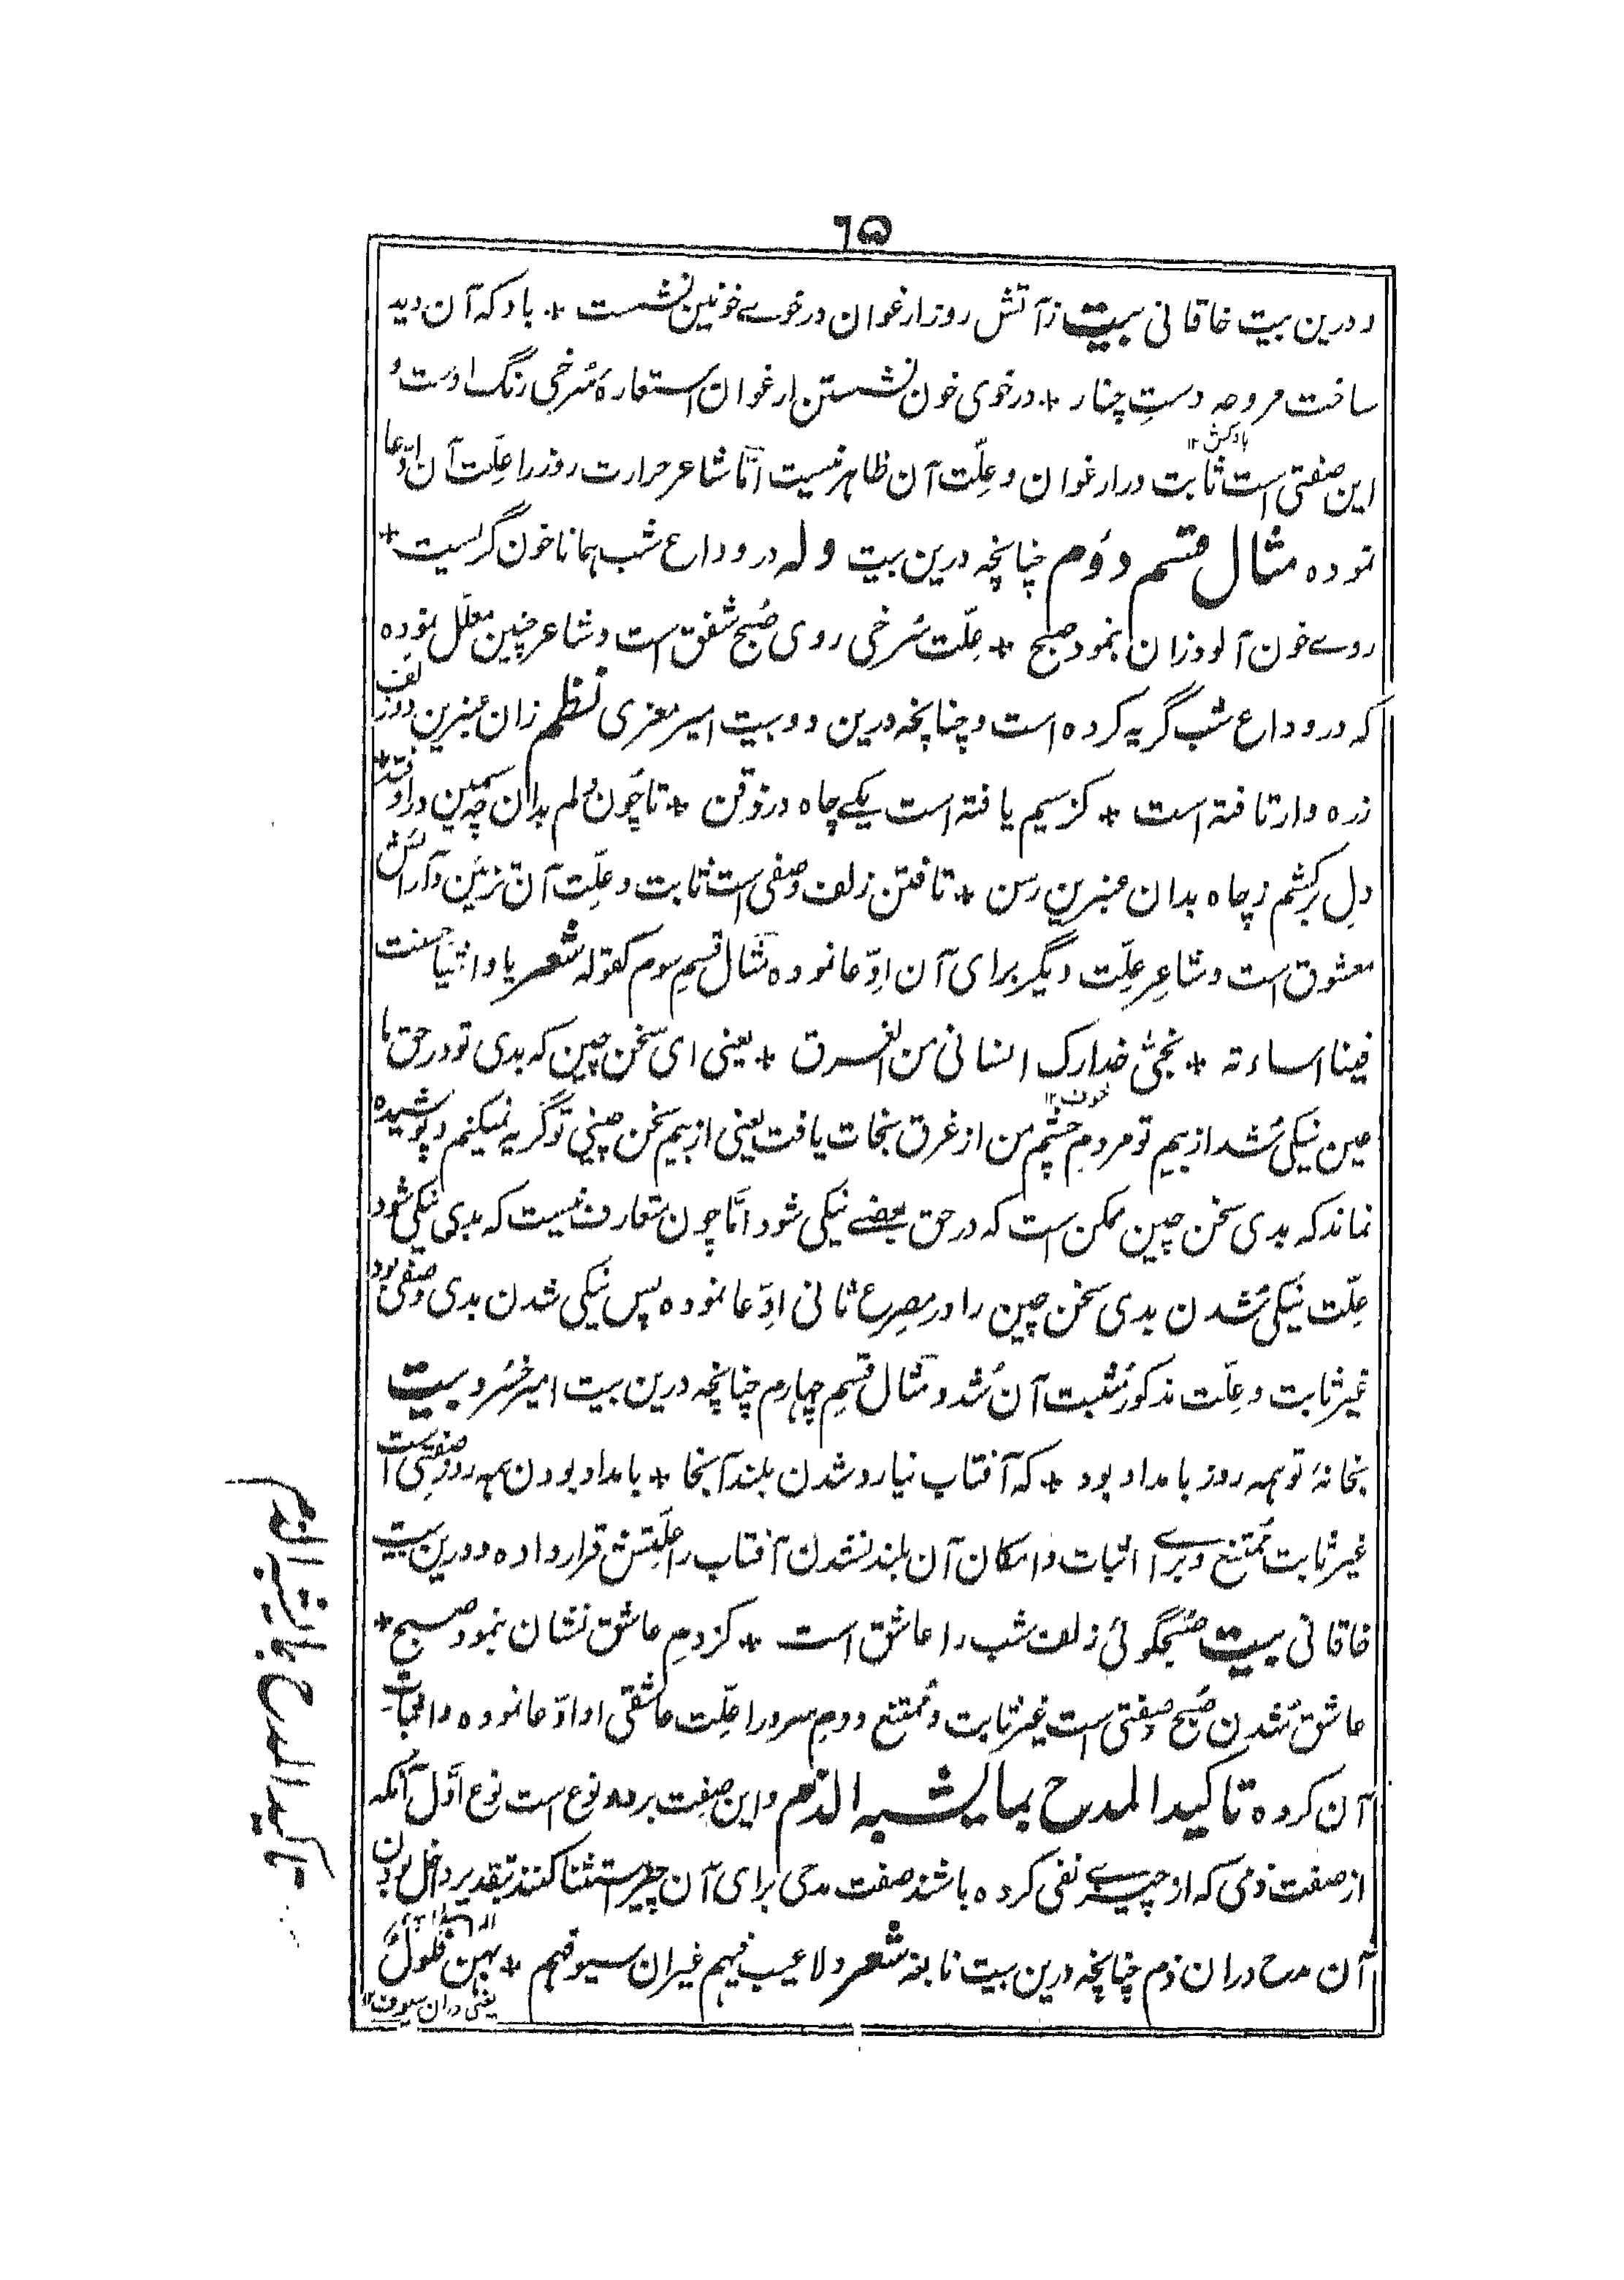 ٦٥
و درین بیت خاقانی بیت زآتش روز ارغوان در خوے خونین نشست * باد که آن دید
ساخت مروحه دستِ چنار * در خوی خون نشستن ارغوان استعارهٔ سُرخی رنگ اوست و
بادکش ۱۲
این صفتی است ثابت در ارغوان و علّت آن ظاهر نیست امّا شاعر حرارت روز را علّت آن ادّعا
نموده مثال قسم دوُم چنانچه درین بیت وله در وداع شب همانا خون گریست *
روے خون آلود زان بنمود صبح * علّت سُرخی روی صُبح شفق است و شاعر چنین معلّل نموده
که در وداع شب گریه کرده است و چنانچه درین دو بیت امیر معزی نظم زان عنبرین دو زلف
زره وار تافته است * کز سیم یافته است یکے چاه در ذوقن * تا چُون دلم بدان چه سیمین در اوفتد *
دلِ برکشم ز چاه بدان عنبرین رسن * تافتن زلف وصفی است ثابت و علّت آن تزئین و آرائش
معشوق است و شاعرِ علّت دیگر برای آن ادّعا نموده مثال قسمِ سوم کقوله شعر یا واشیا حسنت
فینا اساءته * نجّیٰ حذارک انسانی من الغرق * یعنی ای سخن چین که بدی تو در حق ما
خوف ۱۲
عین نیکی شُد از بیمِ تو مردمِ چشم من از غرق نجات یافت یعنی از بیم سخن چینی تو گریه نمیکنم و پوشیده
نماند که بدی سخن چین ممکن است که در حق بعضے نیکی شود امّا چون متعارف نیست که بدی نیکی شود
علّت نیکی شُدن بدی سخن چین را در مصرع ثانی ادّعا نموده پس نیکی شدن بدی وصفی بود
غیر ثابت و علّت مذکور مُثبت آن شُد و مثال قسمِ چهارم چنانچه درین بیت امیر خسُرو بیت
بخانهٔ تو همه روز بامداد بود * که آفتاب نیارد شدن بلند آنجا * بامداد بودن همه روز صفتی است
غیر ثابت مُمتنع و برے اثبات و امکان آن بلند نشدن آفتاب را علّتش قرار داده و درین بیت
خاقانی بیت صُبح گوئی زلف شب را عاشق است * کز دمِ عاشق نشان بنمود صبح *
عاشق شُدن صُبح صفتی است غیر ثابت و مُمتنع و دم سرد را علّت عاشقی او ادّعا نموده و اثبات
آن کرده تاکید المدح بما یشبه الذم و این صفت بر دو نوع است نوع اوّل آنکه
از صفت ذمی که از چیزے نفی کرده باشند صفت مدحی برای آن چیز استثنا کنند بتقدیر داخل بودن
آن مدح در ان ذم چنانچه درین بیت نابغه شعر و لا عیب فیهم غیر ان سیوفهم * بهن فلول
یعنی در ان سیوف ۱۲
تاکید المدح بما یشبه الذم